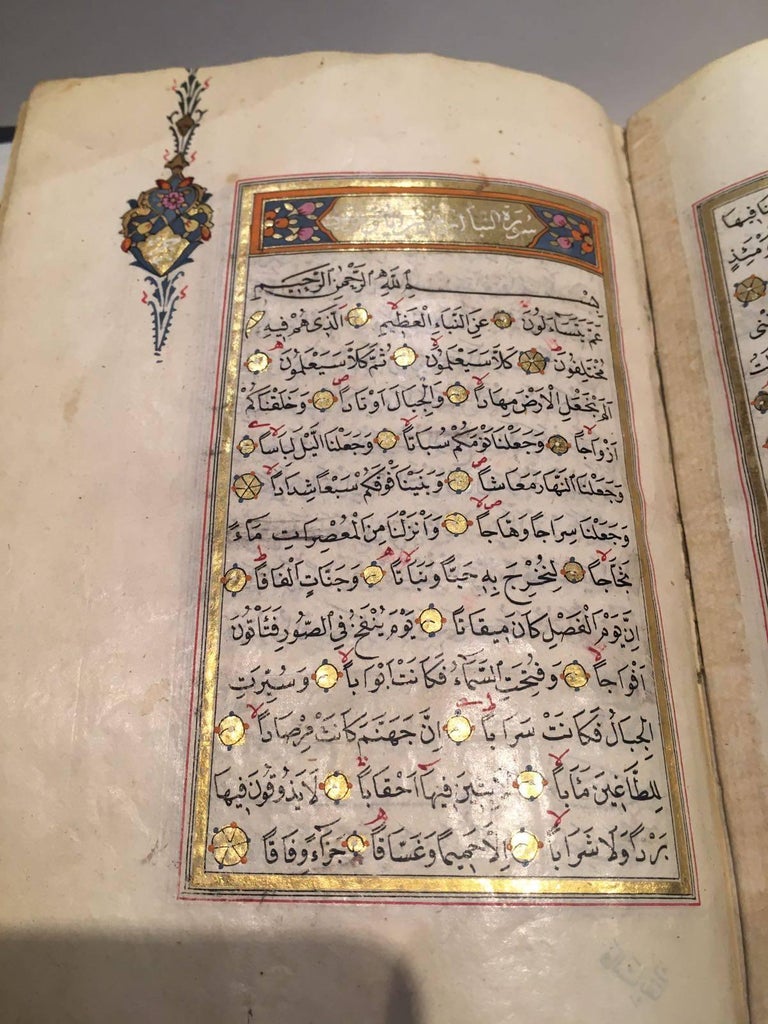 سورة النبأ
بسم الله الرحمن الرحيم
عَمَّ يَتَسَاءَلُونَ عَنِ النَّبَاءِ الْعَظِيمِ الَّذِى هُمْ فِيهِ
مُخْتَلِفُونَ كَلَّا سَيَعْلَمُونَ ثُمَّ كَلَّا سَيَعْلَمُونَ
اَلَمْ نَجْعَلِ الْاَرْضَ مِهَاداً وَالْجِبَالَ اَوْتَاداً وَخَلَقْنَاكُمْ
اَزْوَاجاً وَجَعَلْنَا نَوْمَكُمْ سُبَاتاً وَجَعَلْنَا الَّيْلَ لِبَاساً
وَجَعَلْنَا النَّهَارَ مَعَاشاً وَبَنَيْنَا فَوْقَكُمْ سَبْعاً شِدَاداً
وَجَعَلْنَا سِرَاجاً وَهَّاجاً وَاَنْزَلْنَا مِنَ الْمُعْصِرَاتِ مَاءً
ثَجَّاجاً لِنُخْرِجَ بِهِ حَبّاً وَنَبَاتاً وَجَنَّاتٍ اَلْفَافاً
اِنَّ يَوْمَ الْفَصْلِ كَانَ مِيقَاتاً يَوْمَ يُنْفَخُ فِى الصُّورِ فَتَأْتُونَ
اَفْوَاجاً وَفُتِحَتِ السَّمَاءُ فَكَانَتْ اَبْوَاباً وَسُيِّرَتِ
الْجِبَالُ فَكَانَتْ سَرَاباً اِنَّ جَهَنَّمَ كَانَتْ مِرْصَاداً
لِلطَّاغِينَ مَآباً لَابِثِينَ فِيهَا اَحْقَاباً لَا يَذُوقُونَ فِيهَا
بَرْداً وَلَا شَرَاباً اِلَّا حَمِيماً وَغَسَّاقاً جَزَاءً وِفَاقاً